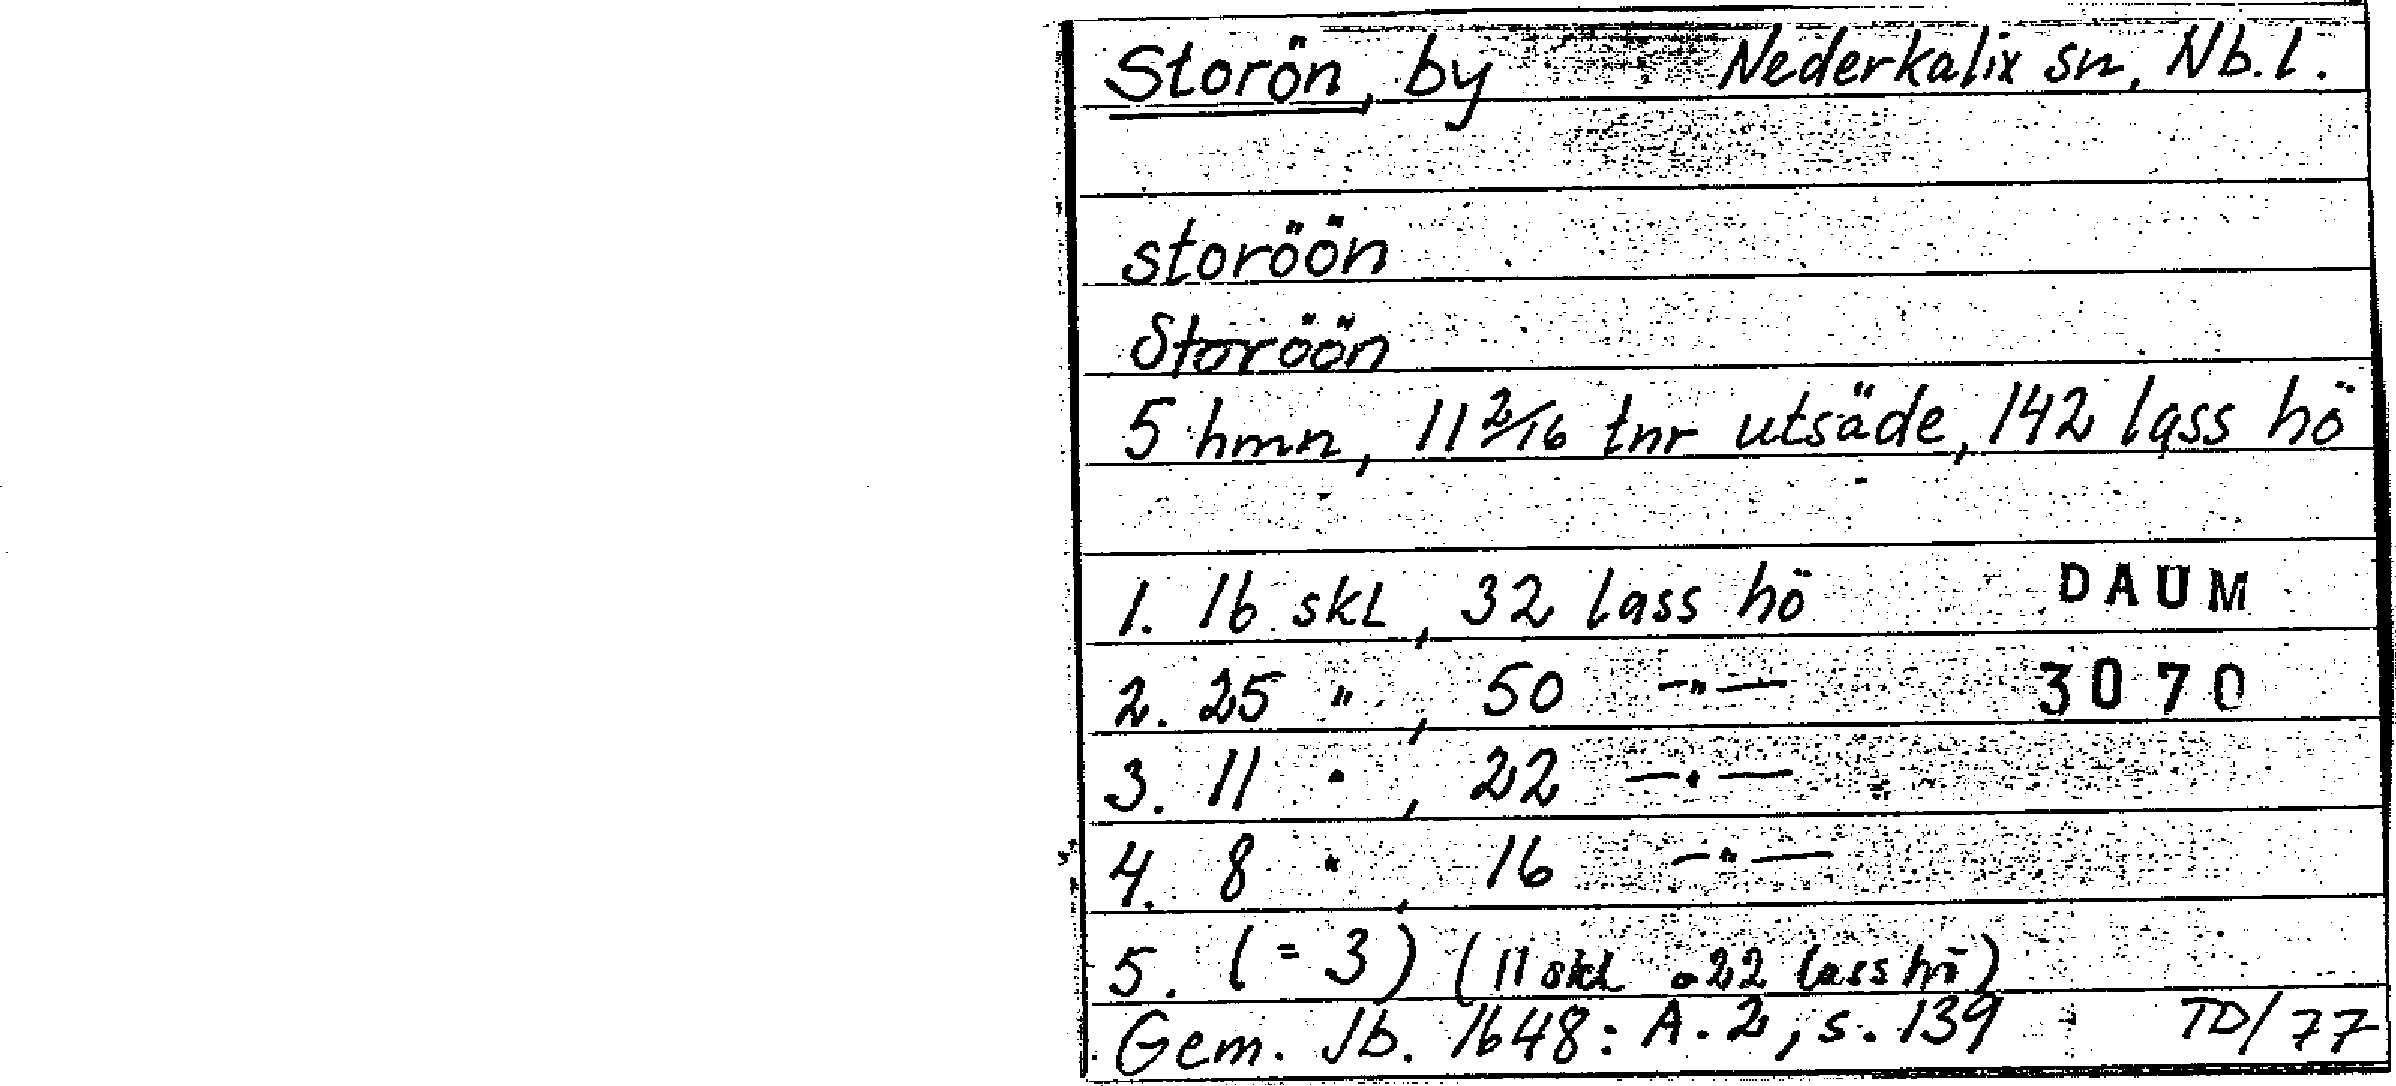 Storön, by Nederkalix sn, Nb.l.
storöön
Storöön
5 hmn, 11 2/16 tnr utsäde, 142 lass hö
1. 16 skl, 32 lass hö DAUM
2. 25 " , 50 —"— 3070
3. 11 " , 22 —"—
4. 8 " , 16 —"—
5. (= 3) (11 skl o 22 lass hö)
Gem. Jb. 1648: A. 2, s. 139 TD/77